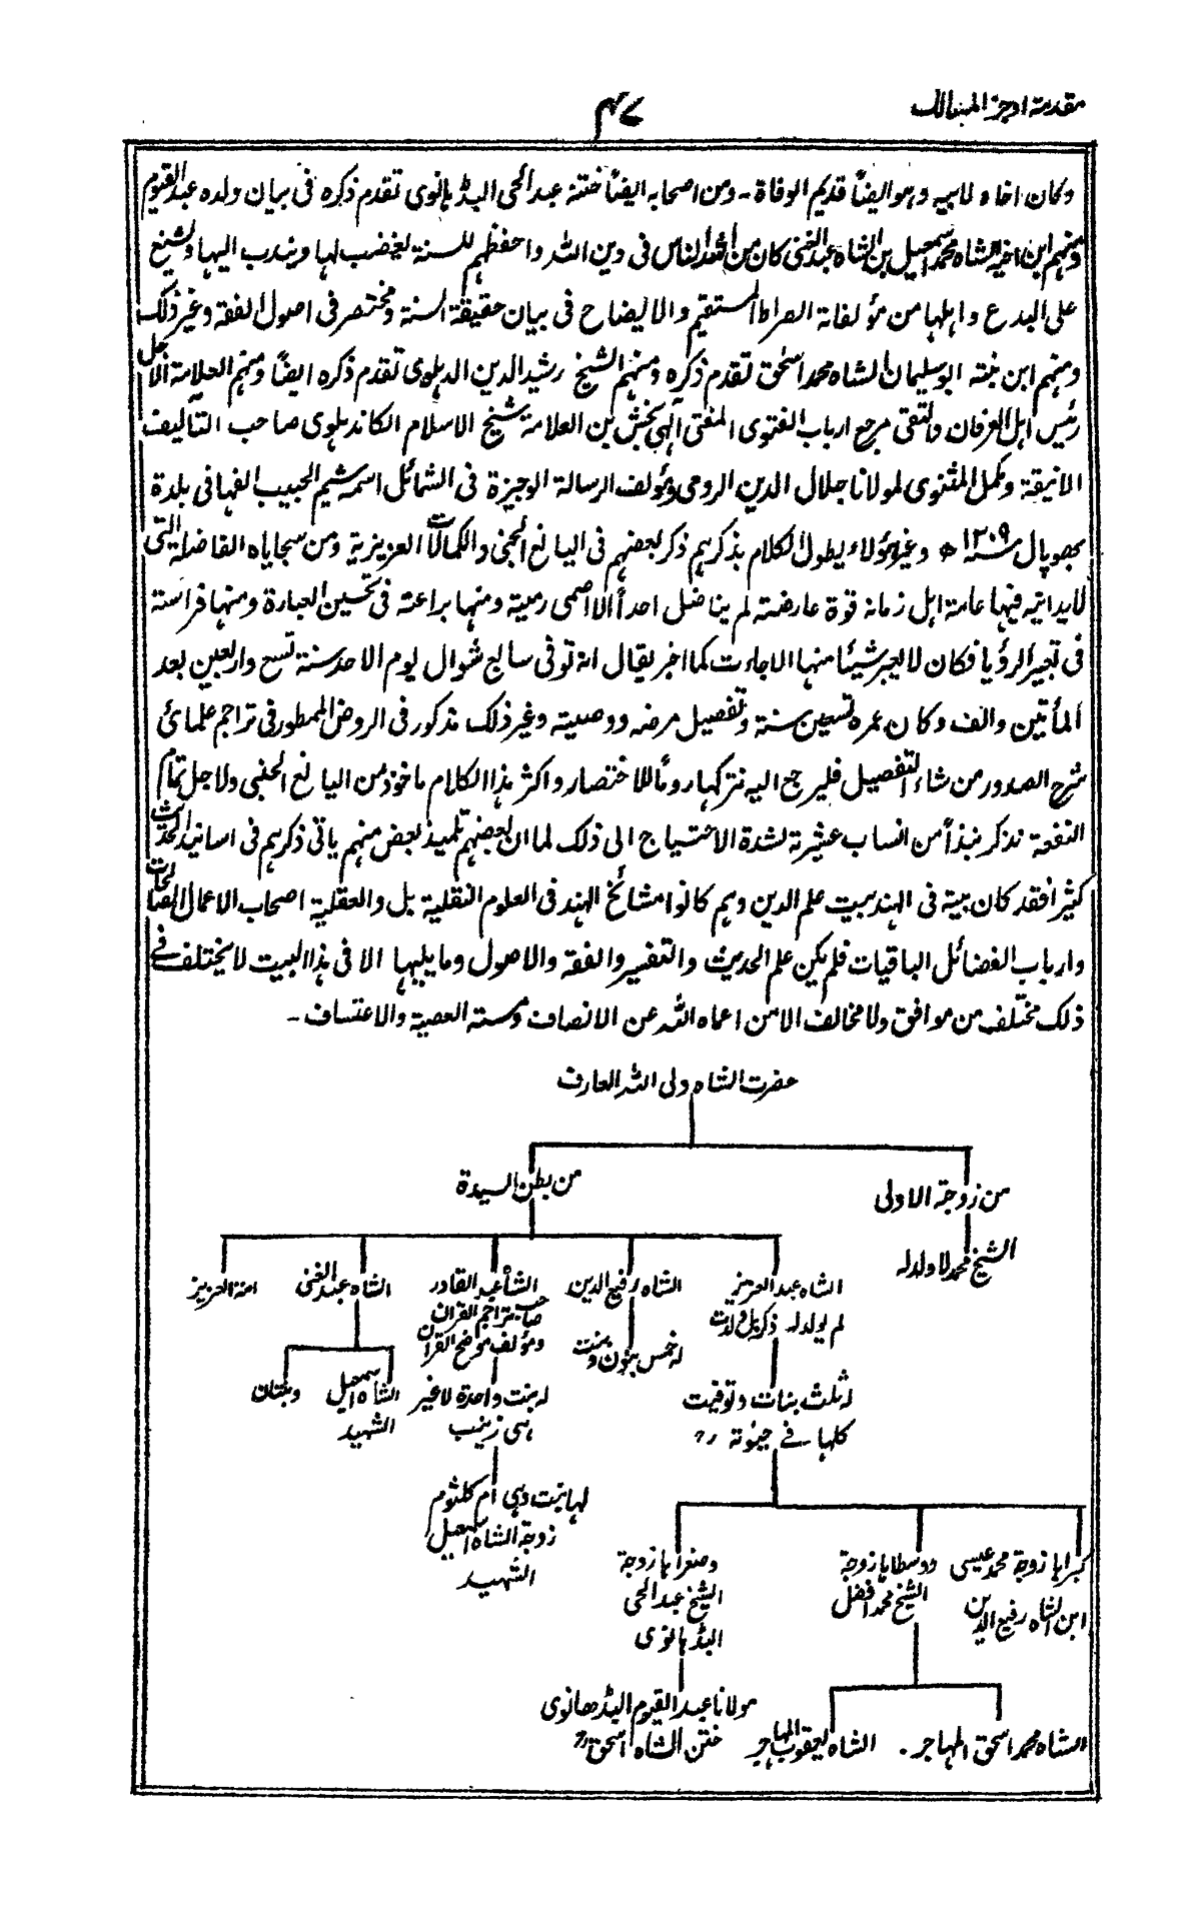 مقدمة اوجز المسالك
٤٧
وكان اخاه لابيه وهو ايضاً قديم الوفاة - ومن اصحابه ايضاً ختنه عبد الحى البڈهانوى تقدم ذكره فى بيان ولده عبد القيوم
ومنهم ابن اخيه الشاه محمد اسمعيل بن الشاه عبد الغنى كان من اشد الناس فى دين الله واحفظهم للسنة يغضب لها ويندب اليها ويشنع
على البدع واهلها من مؤلفاته الصراط المستقيم والايضاح فى بيان حقيقة السنة ومختصر فى اصول الفقه وغير ذلك
ومنهم ابن بنته ابو سليمان الشاه محمد اسحٰق تقدم ذكره ومنهم الشيخ رشيد الدين الدهلوى تقدم ذكره ايضاً ومنهم العلامة الاجل
رئيس اهل العرفان والتقى مرجع ارباب الفتوى المفتى الٰهى بخش بن العلامة شيخ الاسلام الكاندهلوى صاحب التآليف
الانيقة ومكمل المثنوى لمولانا جلال الدين الرومى ومؤلف الرسالة الوجيزة فى الشمائل اسمه شيم الحبيب الفها فى بلدة
بهوپال سنة ١٢٠٩ه وغير هؤلاء يطول الكلام بذكرهم ذكر بعضهم فى اليانع الجنى والكمالات العزيزية ومن سجاياه الفاضلة التى
لا يدانيه فيها عامة اهل زمانه قوة عارضته لم يناضل احداً الا اصمى رميته ومنها براعته فى تحسين العبارة ومنها فراسته
فى تعبير الرؤيا فكان لا يعبر شيئا منها الا جاءت كما اخبر يقال انه توفى سابع شوال يوم الاحد سنة تسع واربعين بعد
المأتين والف وكان عمره تسعين سنة وتفصيل مرضه ووصيته وغير ذلك مذكور فى الروض الممطور فى تراجم علمائ
شرح الصدور من شاء التفصيل فليرجع اليه نتركها روماً للاختصار واكثر هذا الكلام ماخوذ من اليانع الجنى ولاجل تمام
النفعة نذكر نبذاً من انساب عشيرته لشدة الاحتياج الى ذلك لما ان بعضهم تلميذ بعض منهم ياتى ذكرهم فى اسانيد الحديث
كثيرا فقد كان بيته فى الهند بيت علم الدين وهم كانوا مشائخ الهند فى العلوم النقلية بل والعقلية اصحاب الاعمال الصالحات
وارباب الفضائل الباقيات فلم يكن علم الحديث والتفسير والفقه والاصول وما يليها الا فى هذا البيت لا يختلف فے
ذلك مختلف من موافق ولا مخالف الا من اعماه الله عن الانصاف ومسته العصبية والاعتساف -
حضرت الشاه ولى الله العارف
من زوجة الاولى
من بطن السيدة
الشيخ محمد لا ولد له
الشاه عبد العزيز
لم يولد له ذكر بل ولدت
له ثلث بنات وتوفيت
كلها فے حيوته
الشاه رفيع الدين
له خمس بنون وبنت
الشاه عبد القادر
صاحب تراجم القرآن
ومؤلف موضح القرآن
له بنت واحدة لا غير
هى زينب
لها بنت وهى ام كلثوم
زوجة الشاه اسمعيل
الشهيد
الشاه عبد الغنى
الشاه اسمعيل
الشهيد
وبنتان
امة العزيز
كبراها زوجة محمد عيسى
ابن الشاه رفيع الدين
ووسطاها زوجة
الشيخ محمد افضل
وصغراها زوجة
الشيخ عبد الحى
البڈهانوى
الشاه محمد اسحق المهاجر .
الشاه يعقوب المهاجر
مولانا عبد القيوم البڈهانوى
ختن الشاه اسحق